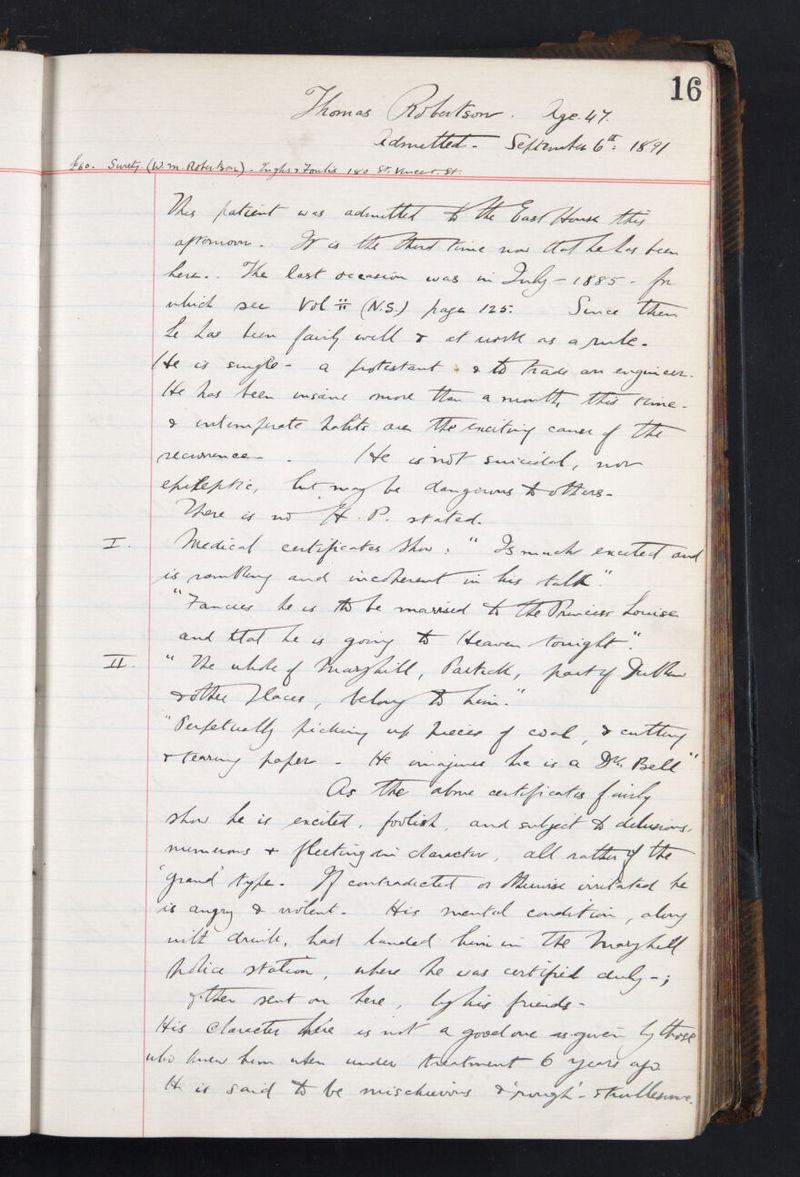 16
Thomas Robertson. Age 47.
Admitted - September 6th: 1891
£60. Surety (W. M. Robertson). 180 St. Vincent. St.
This patient was admitted to the East House this
afternoon. It is the third time now that he has been
here. The last occasion was in July - 1885 - for
which see Vol II (N.S.) page 125: Since then
he has been fairly well & at work as a rule.
He is single - a protestant & to trade an engineer.
He has been insane more than a month this time -
& intemperate habits are the exciting cause of the
recurrence - . He is not suicidal, nor
epileptic, but may be dangerous to others -
There is no H. P. stated.
I. Medical certificates show: "Is much excited and
is rambling and incoherent in his talk".
"Fancies he is to be married to the Princess Louise
and that he is going to Heaven tonight".
II. "The whole of Maryhill, Partick, part of
& other places, belong to him."
"Perpetually picking up pieces of coal, & cutting
& tearing paper - He imagines he is a Dr. Bell"
As the above certificates fairly
show he is excited, foolish, and subject to delusions,
numerous & fleeting in character, all rather of the
'grand' type. If contradicted or otherwise irritated he
is angry & violent. His mental condition, along
with drink, had landed him in the Maryhill
police station, where he was certified duly - ;
& then sent on here, by his friends -
His character here is not a good one as given by those
who knew him when under treatment 6 years ago.
He is said to be mischievous & 'rough' - & troublesome.